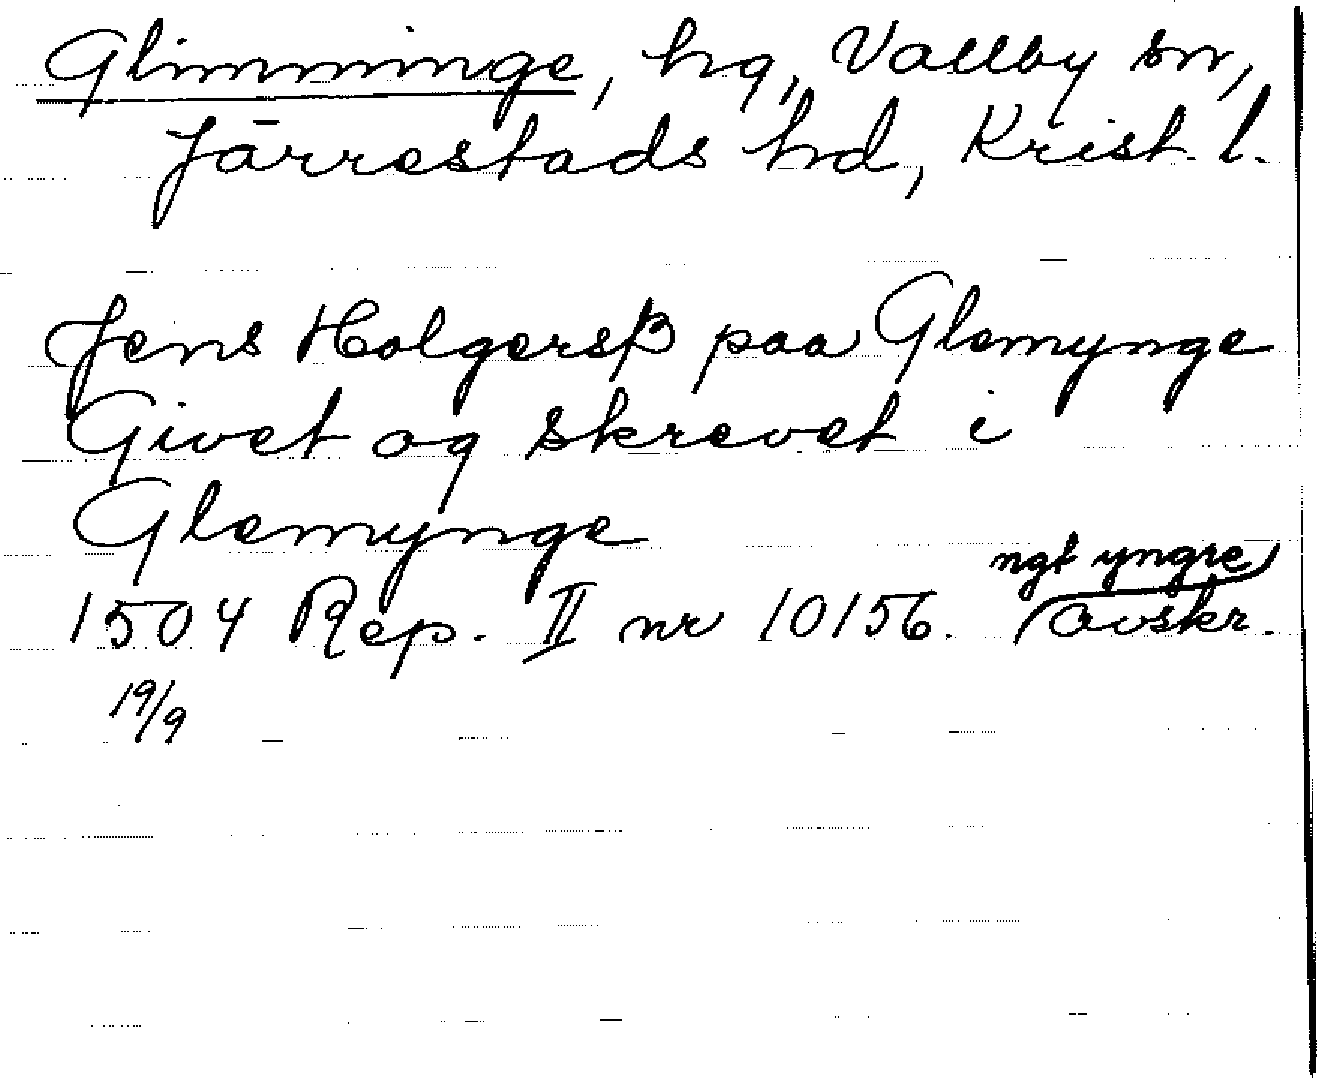 Glimminge, hg, Vallby sn,
Järrestads hd, Krist. l.
Jens Holgersß paa Glemynge
Givet og skrevet i
Glemynge
ngt yngre
1504 Rep. II nr 10156. avskr.
19/9